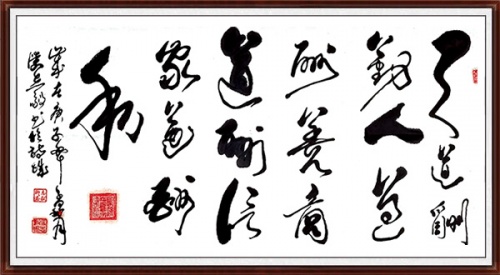 天道酬
勤人道
酬善商
道酬信
家道酬
和
岁在庚子年